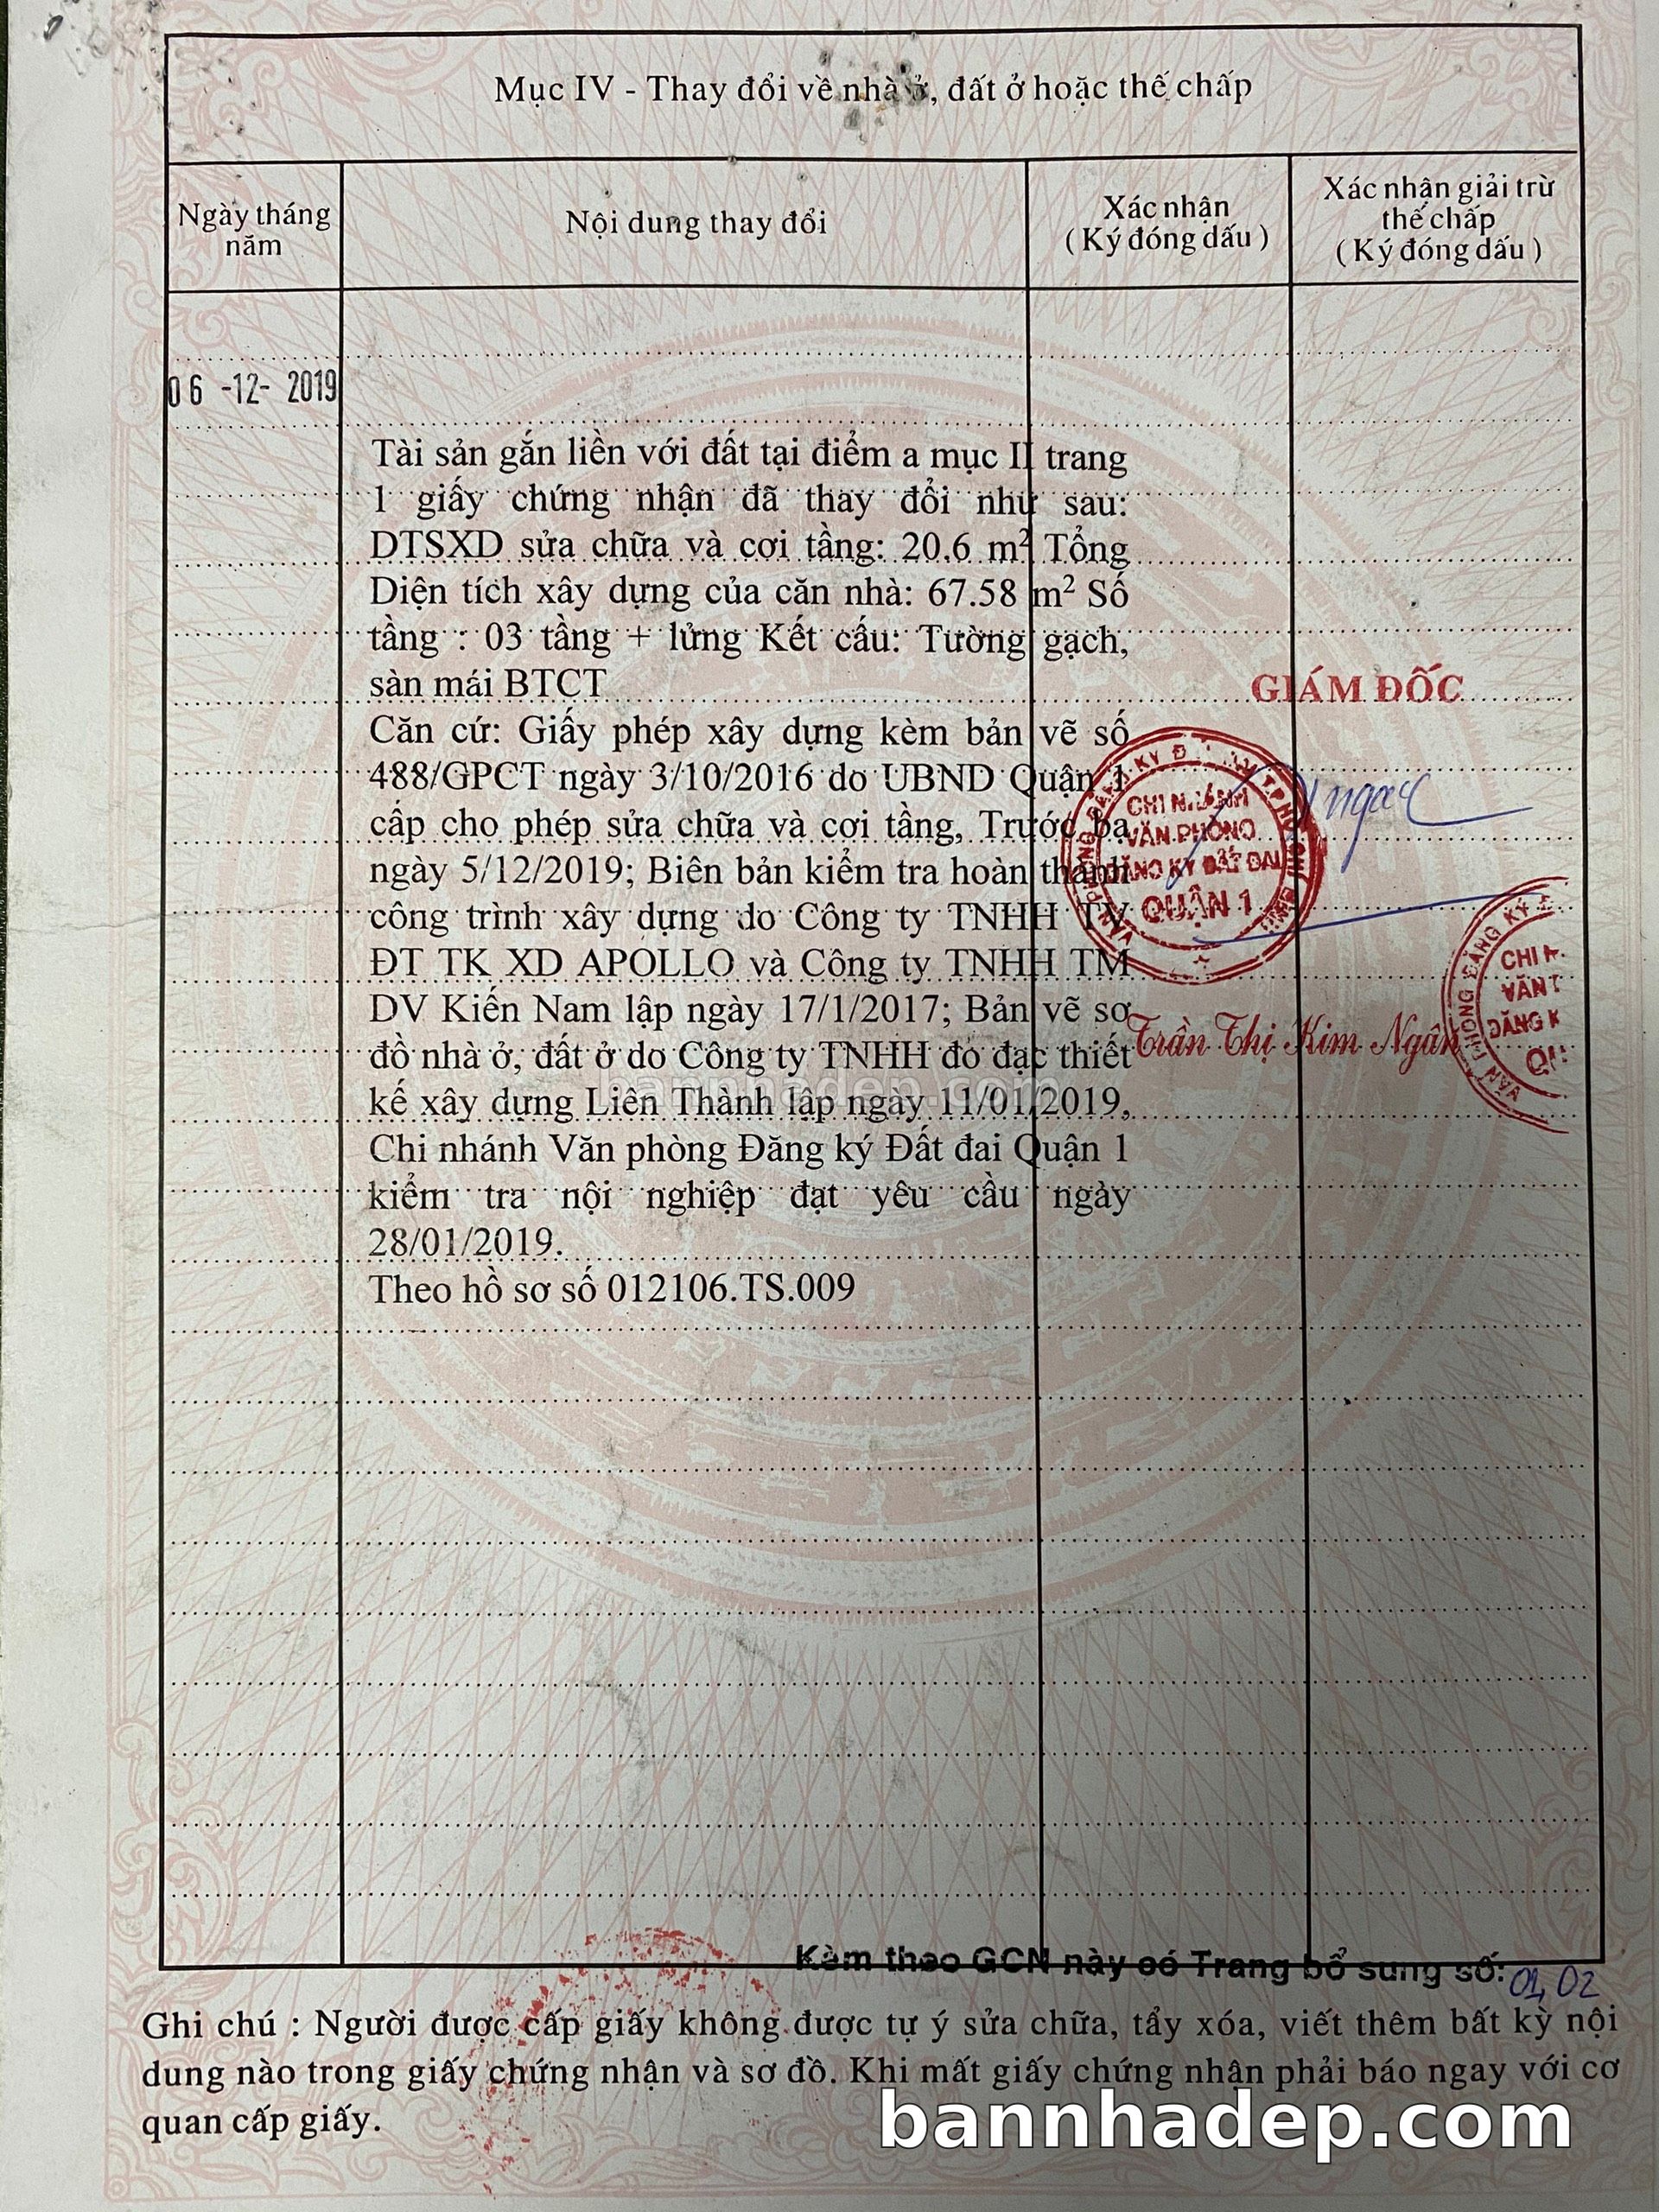 Mục IV - Thay đổi về nhà ở, đất ở hoặc thế chấp
Ngày tháng
năm
Nội dung thay đổi
Xác nhận
( Ký đóng dấu )
Xác nhận giải trừ
thế chấp
( Ký đóng dấu )
06 -12- 2019
Tài sản gắn liền với đất tại điểm a mục II trang
1 giấy chứng nhận đã thay đổi như sau:
DTSXD sửa chữa và cơi tầng: 20.6 m² Tổng
Diện tích xây dựng của căn nhà: 67.58 m² Số
tầng : 03 tầng + lửng Kết cấu: Tường gạch,
sàn mái BTCT
GIÁM ĐỐC
Căn cứ: Giấy phép xây dựng kèm bản vẽ số
488/GPCT ngày 3/10/2016 do UBND Quận 1
cấp cho phép sửa chữa và cơi tầng, Trước bạ
ngày 5/12/2019; Biên bản kiểm tra hoàn thành
công trình xây dựng do Công ty TNHH TV
ĐT TK XD APOLLO và Công ty TNHH TM
DV Kiến Nam lập ngày 17/1/2017; Bản vẽ sơ
đồ nhà ở, đất ở do Công ty TNHH đo đạc thiết
kế xây dựng Liên Thành lập ngày 11/01/2019,
Chi nhánh Văn phòng Đăng ký Đất đai Quận 1
kiểm tra nội nghiệp đạt yêu cầu ngày
28/01/2019.
Theo hồ sơ số 012106.TS.009
CHI NHÁNH
VĂN PHÒNG
ĐĂNG KÝ ĐẤT ĐAI
QUẬN 1
Trần Thị Kim Ngân
CHI
VĂN
ĐĂNG K
bannhadep.com
Kèm theo GCN này có Trang bổ sung số: 01, 02
Ghi chú : Người được cấp giấy không được tự ý sửa chữa, tẩy xóa, viết thêm bất kỳ nội
dung nào trong giấy chứng nhận và sơ đồ. Khi mất giấy chứng nhận phải báo ngay với cơ
quan cấp giấy.
bannhadep.com